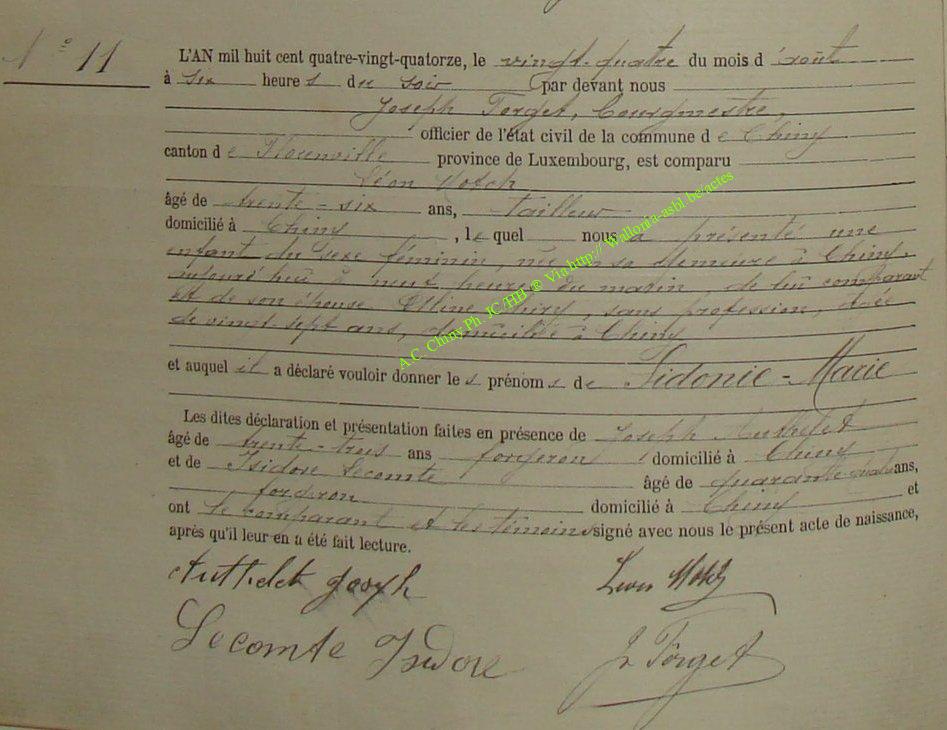 N° 11
L'AN mil huit cent quatre-vingt-quatorze, le vingt-quatre du mois d'août
à six heures du soir par devant nous
Joseph Forget, Bourgmestre,
officier de l'état civil de la commune de Chiny
canton de Florenville province de Luxembourg, est comparu
Léon
âgé de trente-six ans, tailleur
domicilié à Chiny, lequel nous a présenté une
enfant du sexe féminin, née en sa demeure à Chiny,
aujourd'hui à neuf heures du matin, de lui comparant
et de son épouse, sans profession, âgée
de vingt-sept ans, domiciliée à Chiny
et auquel il a déclaré vouloir donner les prénoms de Sidonie-Marie
Les dites déclaration et présentation faites en présence de Joseph Authelet
âgé de trente-trois ans forgeron domicilié à Chiny
et de Isidore Lecomte âgé de quarante-quatre ans,
forgeron domicilié à Chiny et
ont le comparant et les témoins signé avec nous le présent acte de naissance,
après qu'il leur en a été fait lecture.
Authelet Joseph Léon
Lecomte Isidore J Forget
A.C. Chiny Ph. JC/HB ® Via http://Wallonia-asbl.be/actes